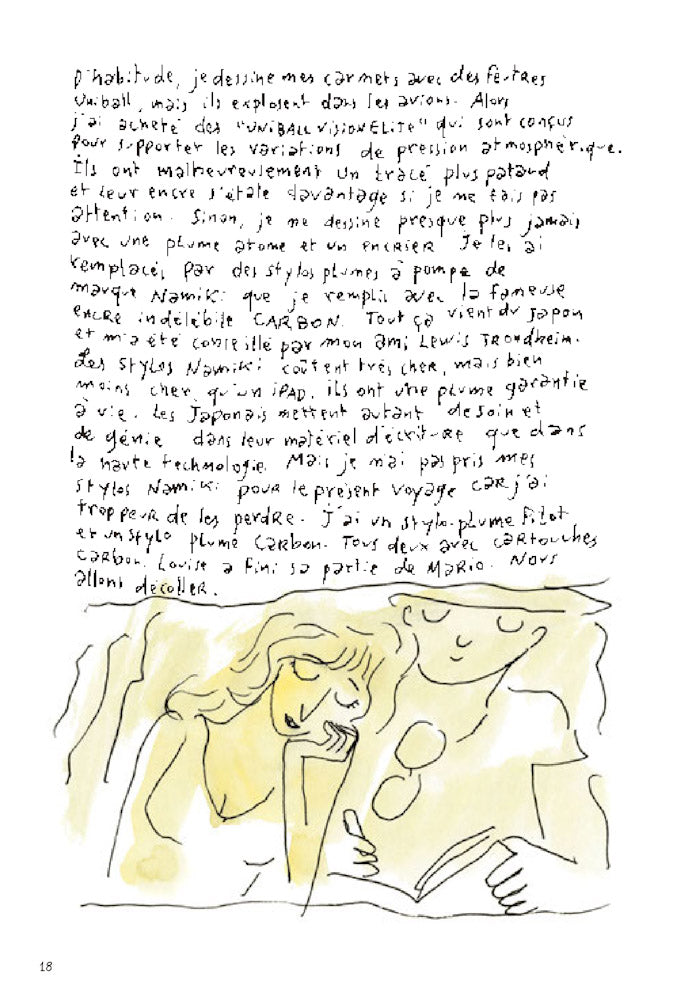 D'habitude, je dessine mes carnets avec des feutres
Uniball, mais ils explosent dans les avions. Alors
j'ai acheté des "UNIBALL VISION ELITE" qui sont conçus
pour supporter les variations de pression atmosphérique.
Ils ont malheureusement un tracé plus pataud
et leur encre s'étale davantage si je ne fais pas
attention. Sinon, je ne dessine presque plus jamais
avec une plume atome et un ENCRIER. Je les ai
remplacés par des stylos plumes à pompe de
marque NAMIKI que je remplis avec la fameuse
encre indélébile CARBON. Tout ça vient du Japon
et m'a été conseillé par mon ami Lewis TRONDHEIM.
Les stylos NAMIKI coûtent très cher, mais bien
moins cher qu'un iPAD. ils ont une plume garantie
à vie. Les Japonais mettent autant de soin et
de génie dans leur matériel d'écriture que dans
la haute technologie. Mais je n'ai pas pris mes
stylos NAMIKI pour le présent voyage CAR j'ai
trop peur de les perdre. J'ai un stylo-plume Pilot
et un stylo plume Carbon. Tous deux avec cartouches
carbon. Louise a fini sa partie de MARIO. Nous
allons décoller.
18